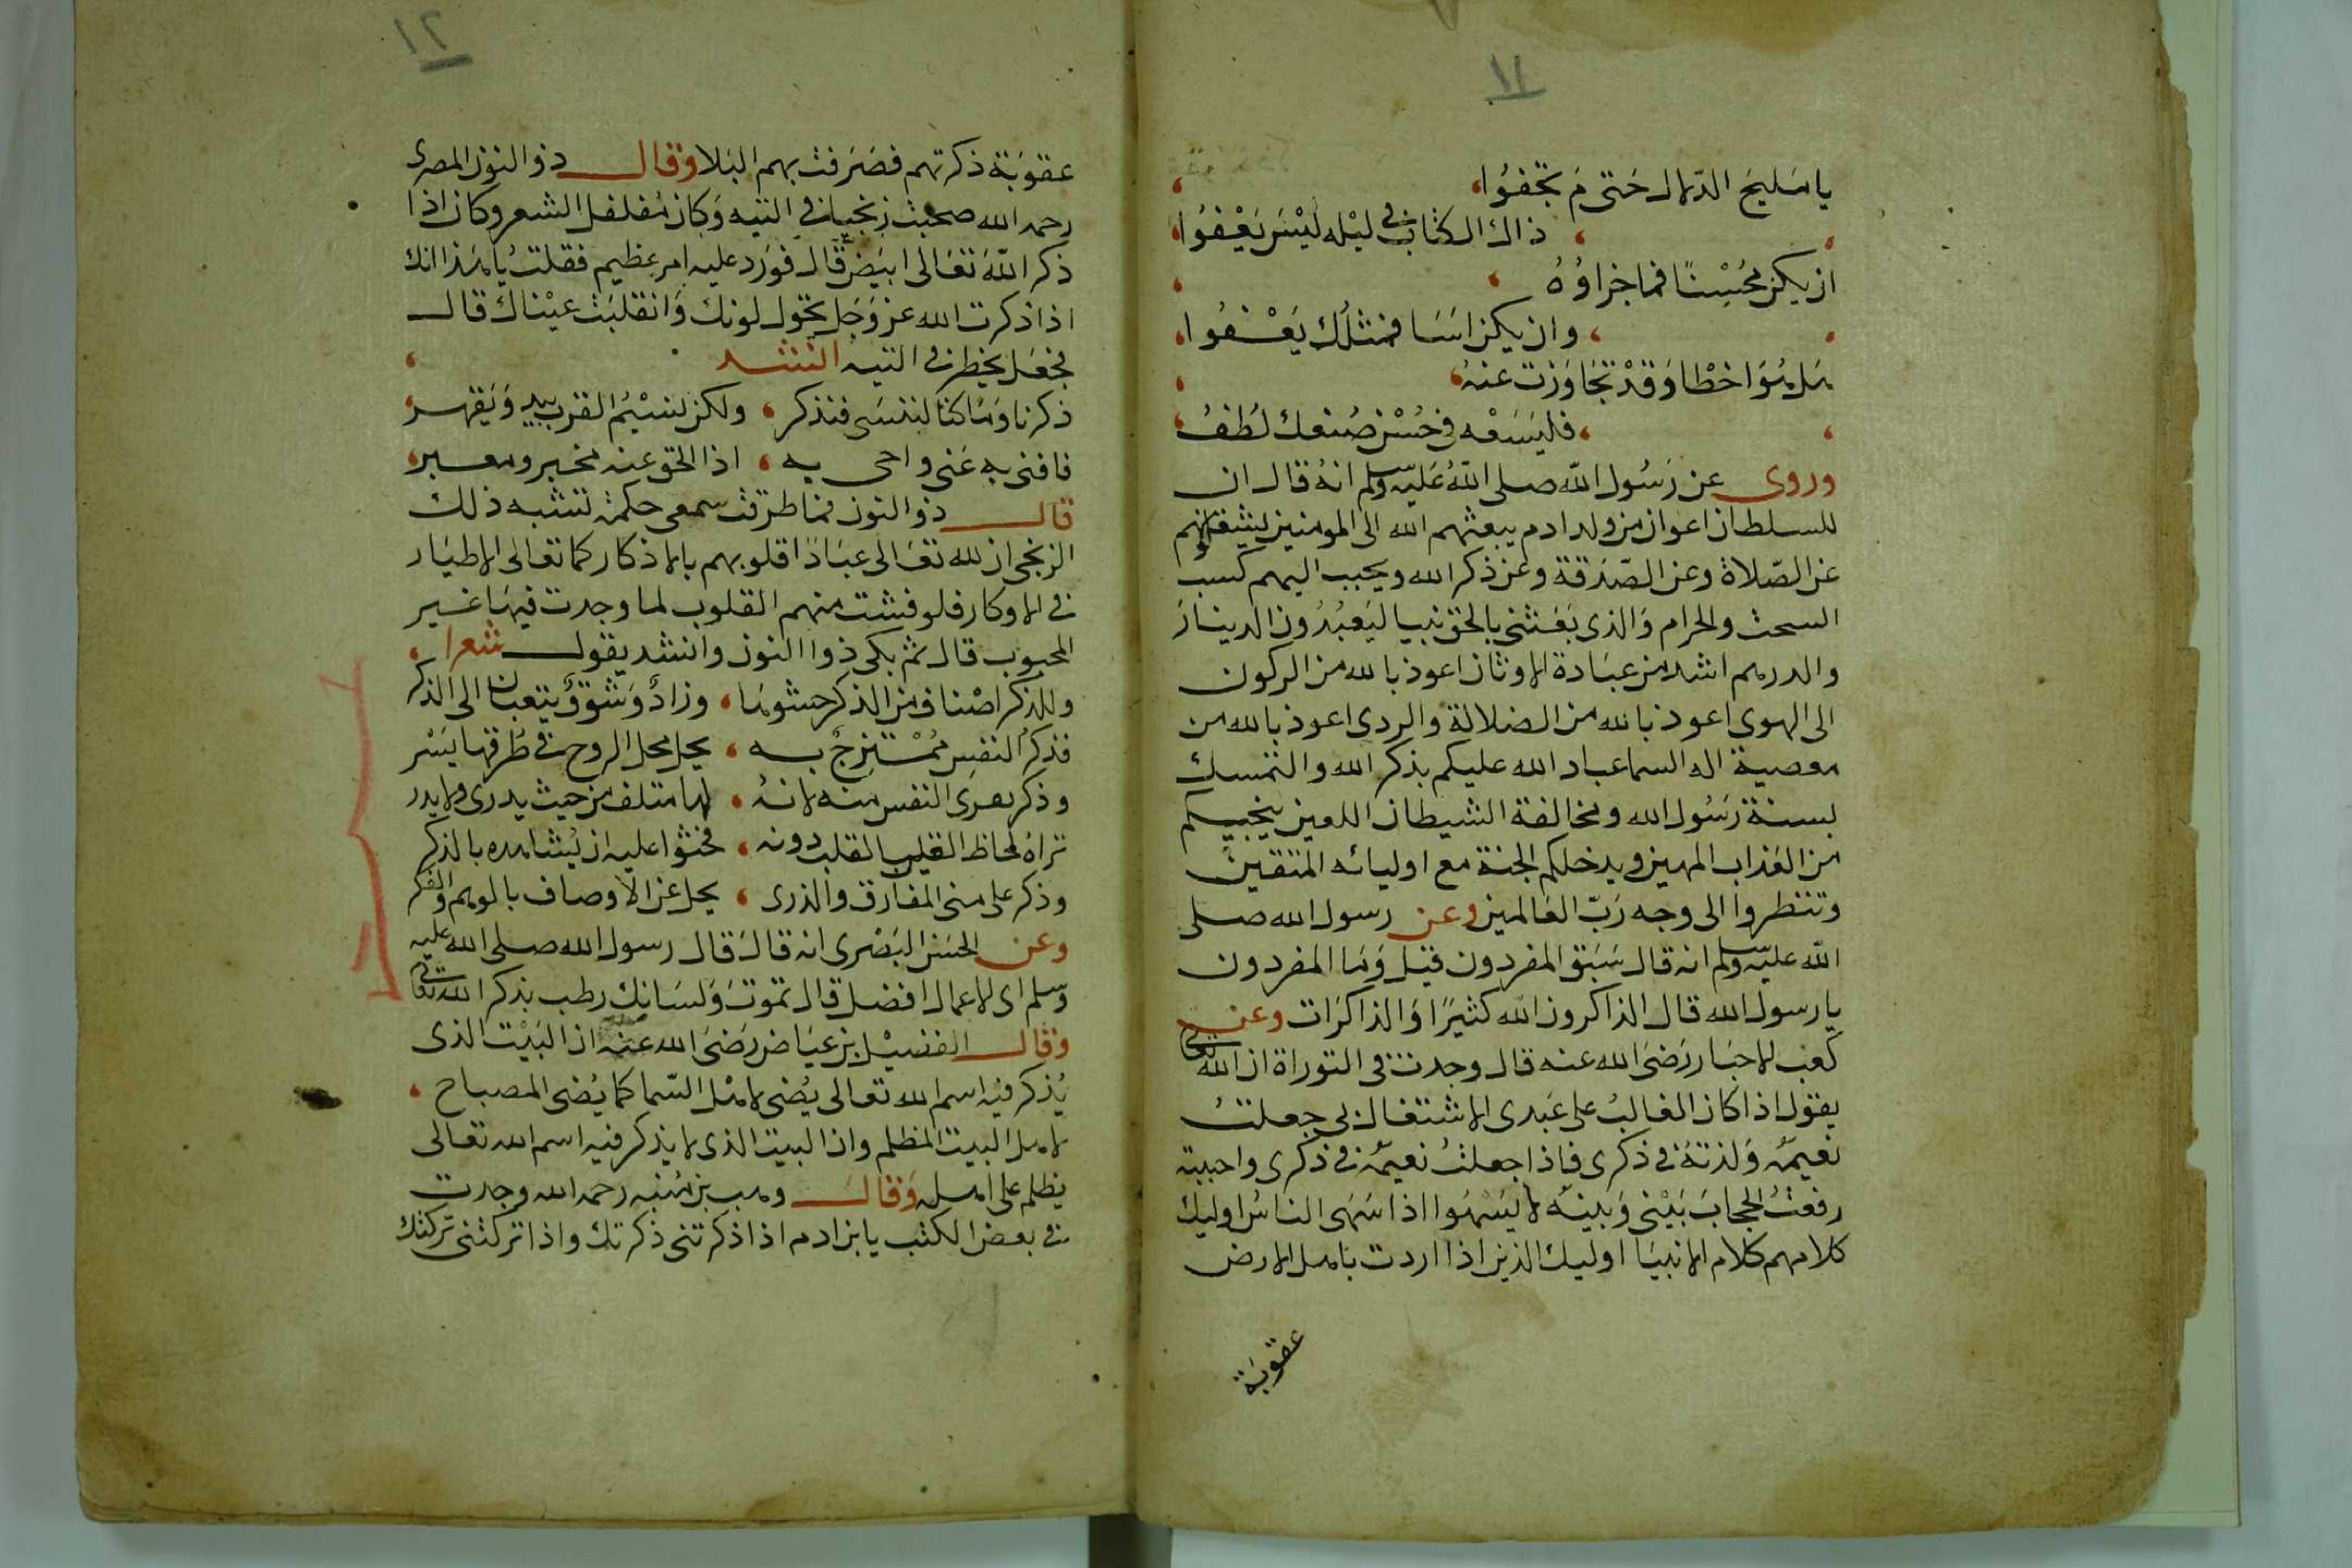 ١١
يا مَليحَ الدّلال حَتى مَ تجفوُا
ذاك الكتاب في ليْله ليْسَ يَغْفوُا
ان يكن مُحْسِنًا فما جزاوُهُ
وان يكن اسَا فمثلُك يَعْفوُا
هَل هُوَ اخطا وَقدْ تجَاوَزت عنهُ
فليَسَعْه في حُسْن صُنعك لُطفُ
وروى عن رَسُول الله صلى اللهُ عَليه وسلم انهُ قال ان
للسلطان اعوان من ولد ادم يبعثهم الله الى المومنين ليشغلونهم
عن الصّلاة وعن الصّدقة وعن ذكر الله ويحبب اليهم كسب
السحت والحرام وَالذى بَعَثنى بالحق نبيا ليَعبُدُون الدينارَ
والدرهم اشد من عبَادة الاوثان اعوذ بالله من الركون
الى الهوى اعوذ بالله من الضلالة والردى اعوذ بالله من
معصية اله السما عباد الله عليكم بذكر الله والتمسك
بسنة رَسُول الله ومخالفة الشيطان اللعين ينجيكم
من العَذاب المهين ويدخلكم الجنة مع اوليائه المتقين
وتنظروا الى وجه رَبّ العَالمين وعن رسول الله صلى
الله عليه وسلم انه قال سَبَق المفردون قيل وَما المفردون
يا رسول الله قال الذاكرون الله كثيرًا وَالذاكرَات وعن
كعب الاحبَار رَضىَ الله عنه قال وجدت في التوراة ان الله تعالى
يقول اذا كان الغالبُ على عَبدى الاشتغال بى جعلتُ
نعيمَه وَلذتهُ في ذكرى فاذا جعلتُ نعيمهُ في ذكرى واحببته
رفعتُ الحجابَ بَيْنى وَبينه لا يَسْهُوا اذا سَهَى الناسُ اوليك
كلامهم كلام الانبيَا اوليك الذين اذا اردت باهل الارض
عقوبَة
١٢
عقوبَة ذكرتهم فصَرَفت بهم البَلا وَقال ذو النون المصرى
رحمه الله صحبت زنجيا في التيه وَكان مُفلفل الشعر وكان اذا
ذكر اللهَ تعَالى ابيَض قال فوَرَد عليه امر عظيم فقلت يا هَذا انك
اذا ذكرت الله عز وَجَل يحول لونك وَانقلبَت عيْناك قال
فجعَل يخطر في التيه انشد
ذكرنا وَما كنا لننسَى فنذكر ولكن نسيْمُ القرب يبدو وَيَقهر
فافنى به عَنى واحى به اذ الحق عنه مخبر ومعبر
قال ذو النون فما طرقت سمعى حكمة تشبه ذلك
الزنجى ان لله تعَالى عبَادًا قلوبهم بالاذكار كما تعَالى الاطيَار
في الاوكار فلو فشت منهم القلوب لما وجدت فيهَا غير
المحبوب قال ثم بكى ذوا النون وانشد يقول شعرا
وللذكر اصْناف من الذكر حشوهَا وزادٌ وَشوْقٌ يتعبان الى الذكر
فذكرُ النفس مُمْتَزجٌ به يحل محل الروح في طرقها يَسْر
وذكر يعرى النفس منه لانهُ لها متلف من حيث يدرى ولا يدر
تراهُ لحاظ القلب بالقلب دونه فحثوا عليه ان يُشاهده بالذكر
وذكر على منى المفارق والذرى يجل عن الاوصاف بالوهم والفكر
وعن الحسَن البَصْرى انه قالَ قال رسول الله صلى الله عليه
وسلم اى الاعمال افضل قال تموتَ وَلسَانك رطب بذكر الله تعالى
وَقال الفضيْل بن عيَاض رَضىَ الله عنه ان البَيْت الذى
يُذكر فيه اسم الله تعالى يُضى لاهْل السّما كما يُضى المصباح
لاهل البيت المظلم وان البيت الذى لا يذكر فيه اسم الله تعالى
يظلم على اهله وَقالَ وهب بن مُنبه رحمه الله وجدت
في بعض الكتب يا بن ادم اذا ذكرتنى ذكرتك واذا تركتنى تركتك